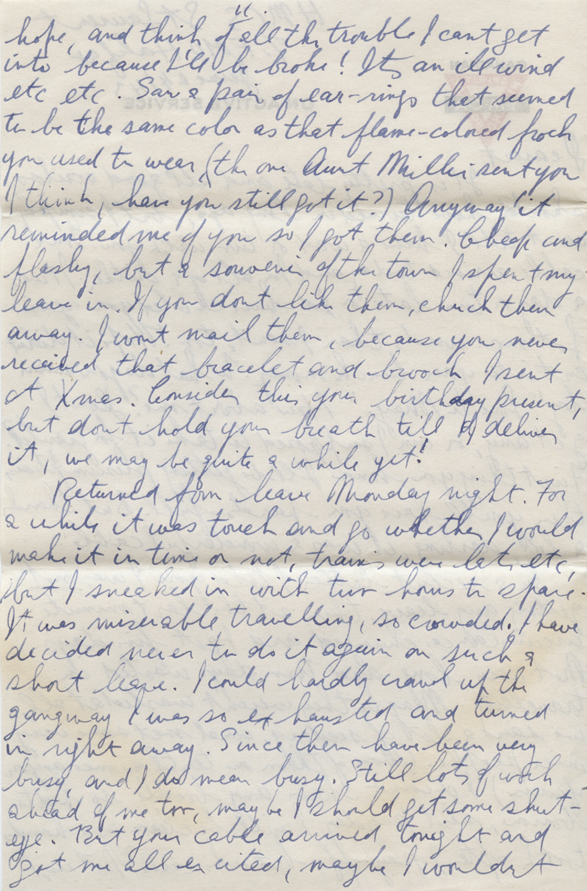 "
hope, and think of all the trouble I cant get
into because I'll be broke! Its an ill wind
etc etc. Saw a pair of ear-rings that seemed
to be the same color as that flame-colored frock
you used to wear (the one Aunt Millie sent you
I think, have you still got it?) Anyway it
reminded me of you so I got them. Cheap and
flashy, but a souvenir of the town I spent my
leave in. If you dont like them, chuck them
away. I wont mail them, because you never
received that bracelet and brooch I sent
at Xmas. Consider this your birthday present,
but dont hold your breath till I deliver
it, we may be quite a while yet!
Returned from leave Monday night. For
a while it was touch and go whether I would
make it in time or not, trains were late etc,
but I sneaked in with two hours to spare.
It was miserable travelling, so crowded. I have
decided never to do it again on such a
short leave. I could hardly crawl up the
gangway I was so exhausted and turned
in right away. Since then have been very
busy, and I do mean busy. Still lots of work
ahead of me too, maybe I should get some shut-
eye. But your cable arrived tonight and
got me all excited, maybe I wouldnt